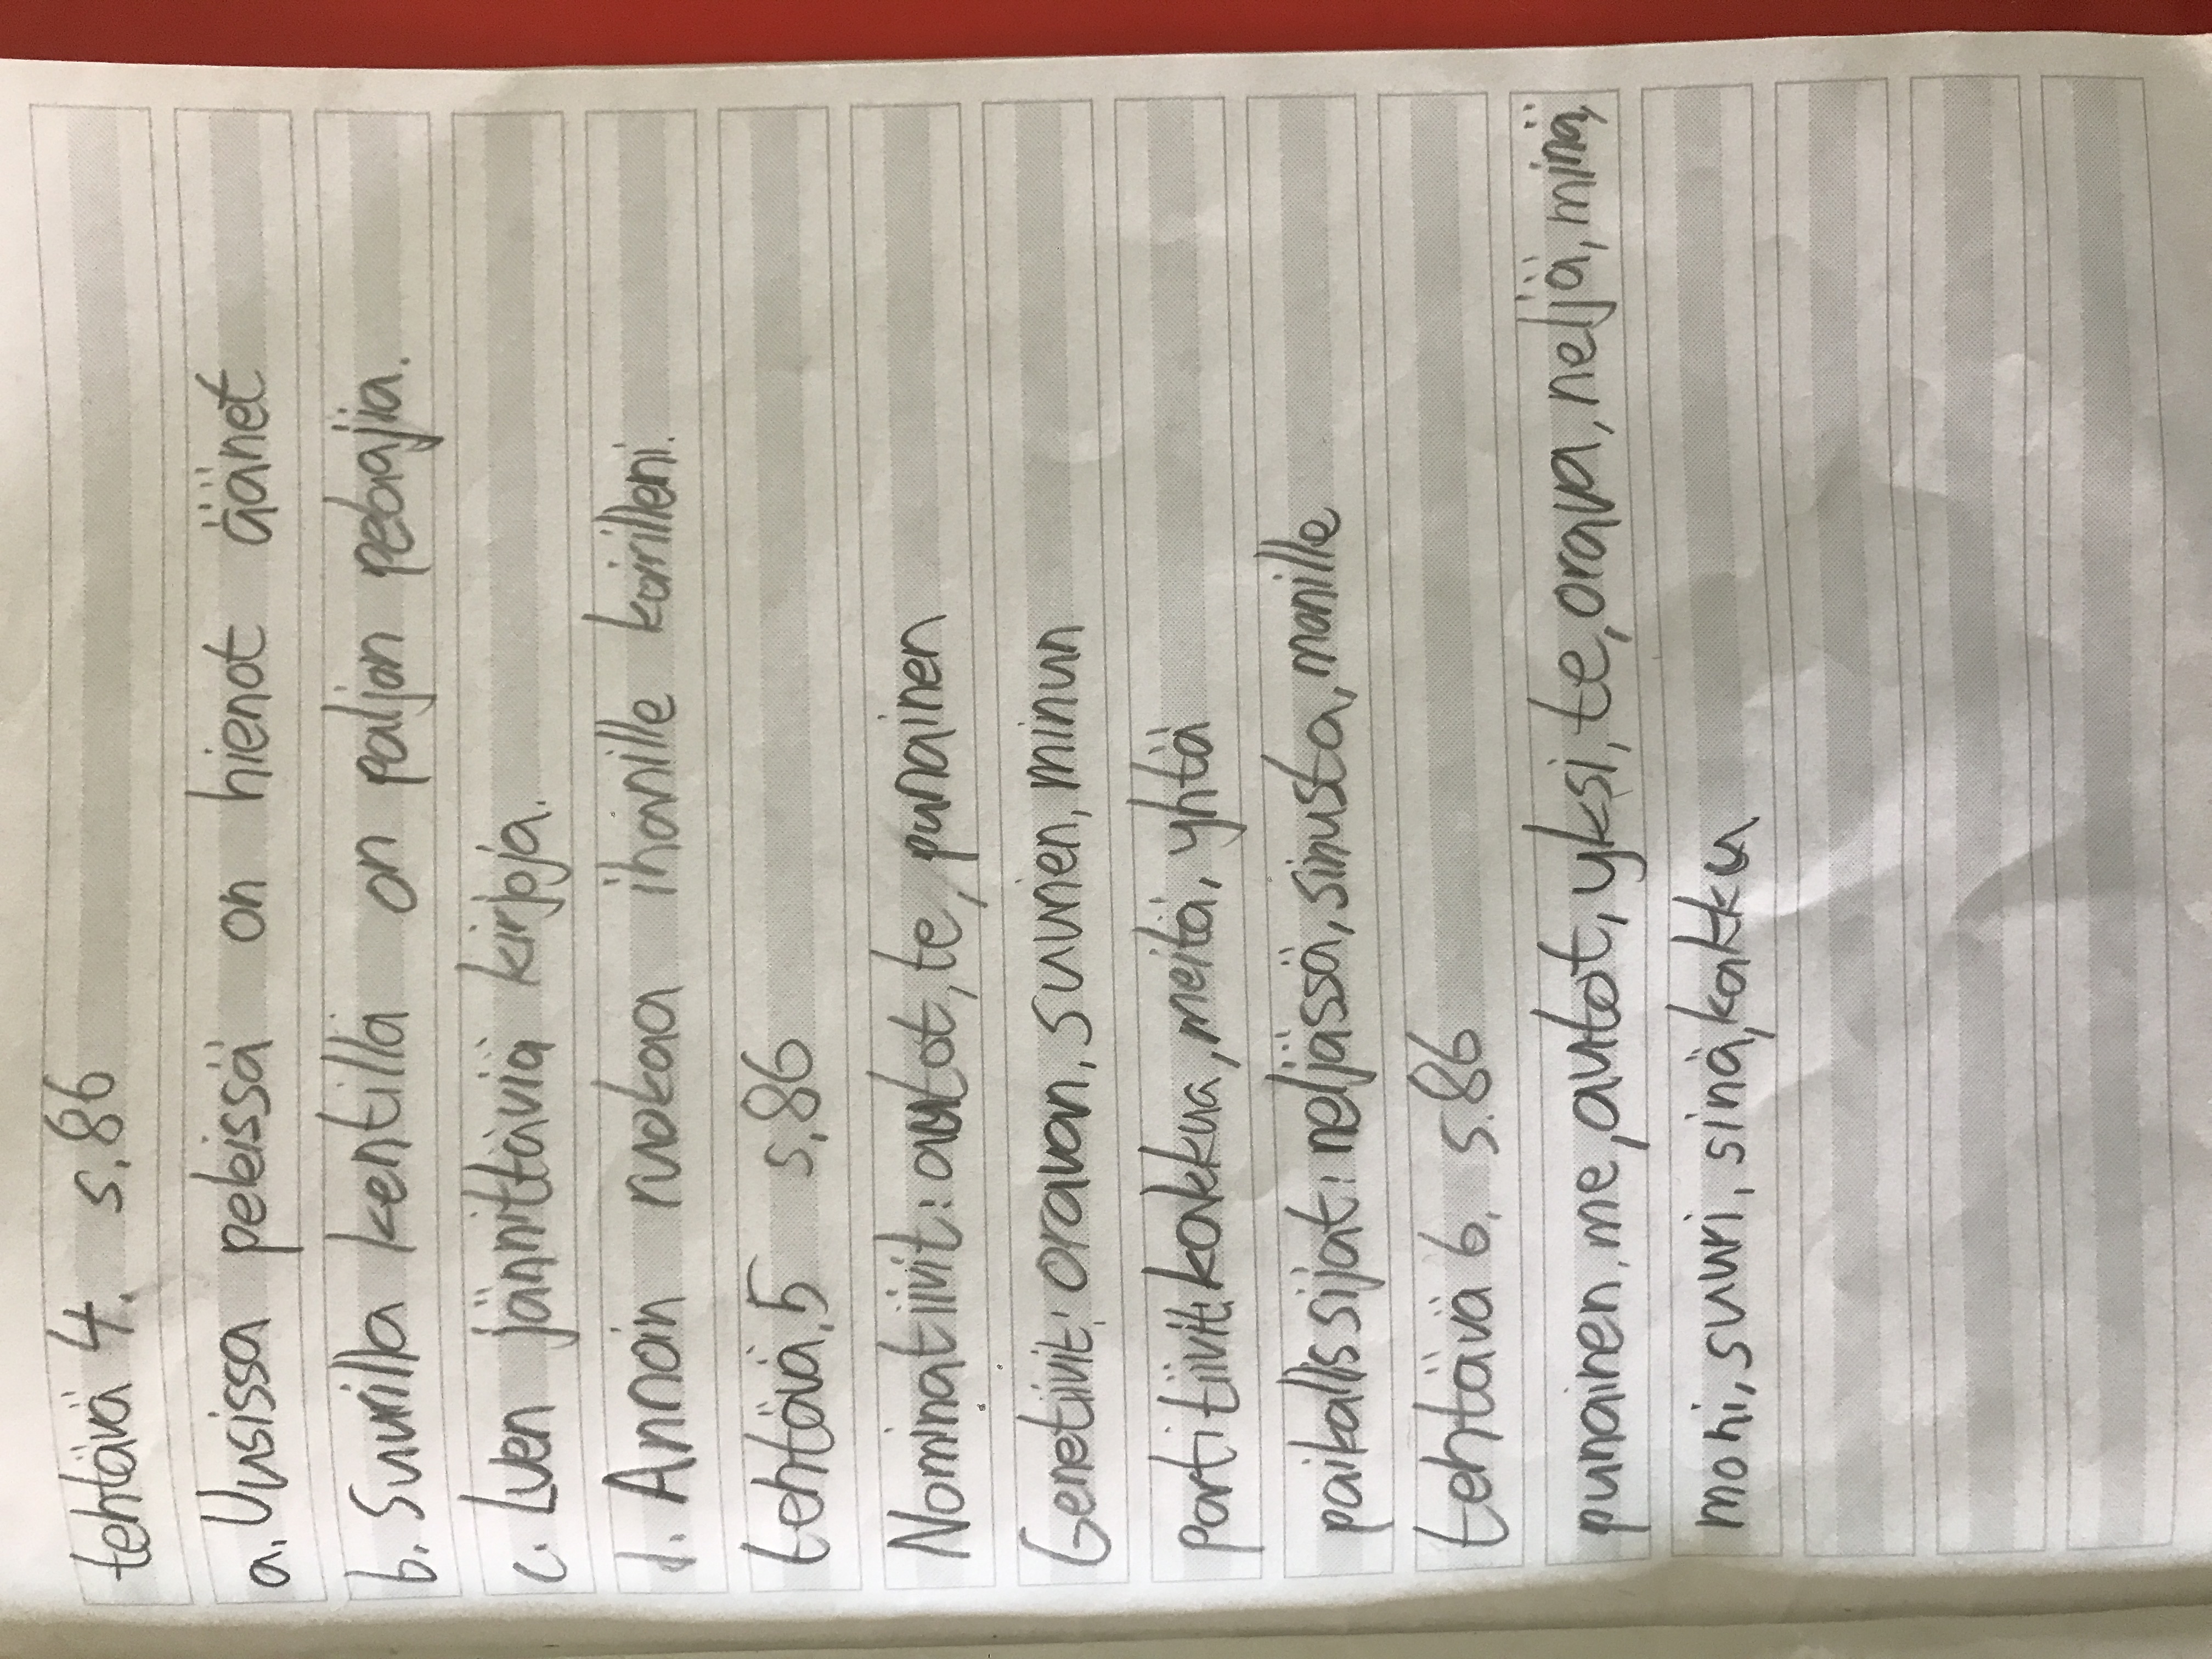 tehtävä 4. s.86
a. Uusissa peleissä on hienot äänet
b. Suurilla kentillä on paljon pelaajia.
c. Luen jännittäviä kirjoja.
d. Annoin ruokaa ihanille koirilleni.
tehtävä.5 s.86
Nominatiivit: autot, te, punainen
Genetiivit: oravan, suuren, minun
partitiivit: kakkua, meitä, yhtä
paikallissijat: neljässä, sinusta, monille
tehtävä 6. s.86
punainen, me, autot, yksi, te, orava, neljä, minä,
moni, suuri, sinä, kakku